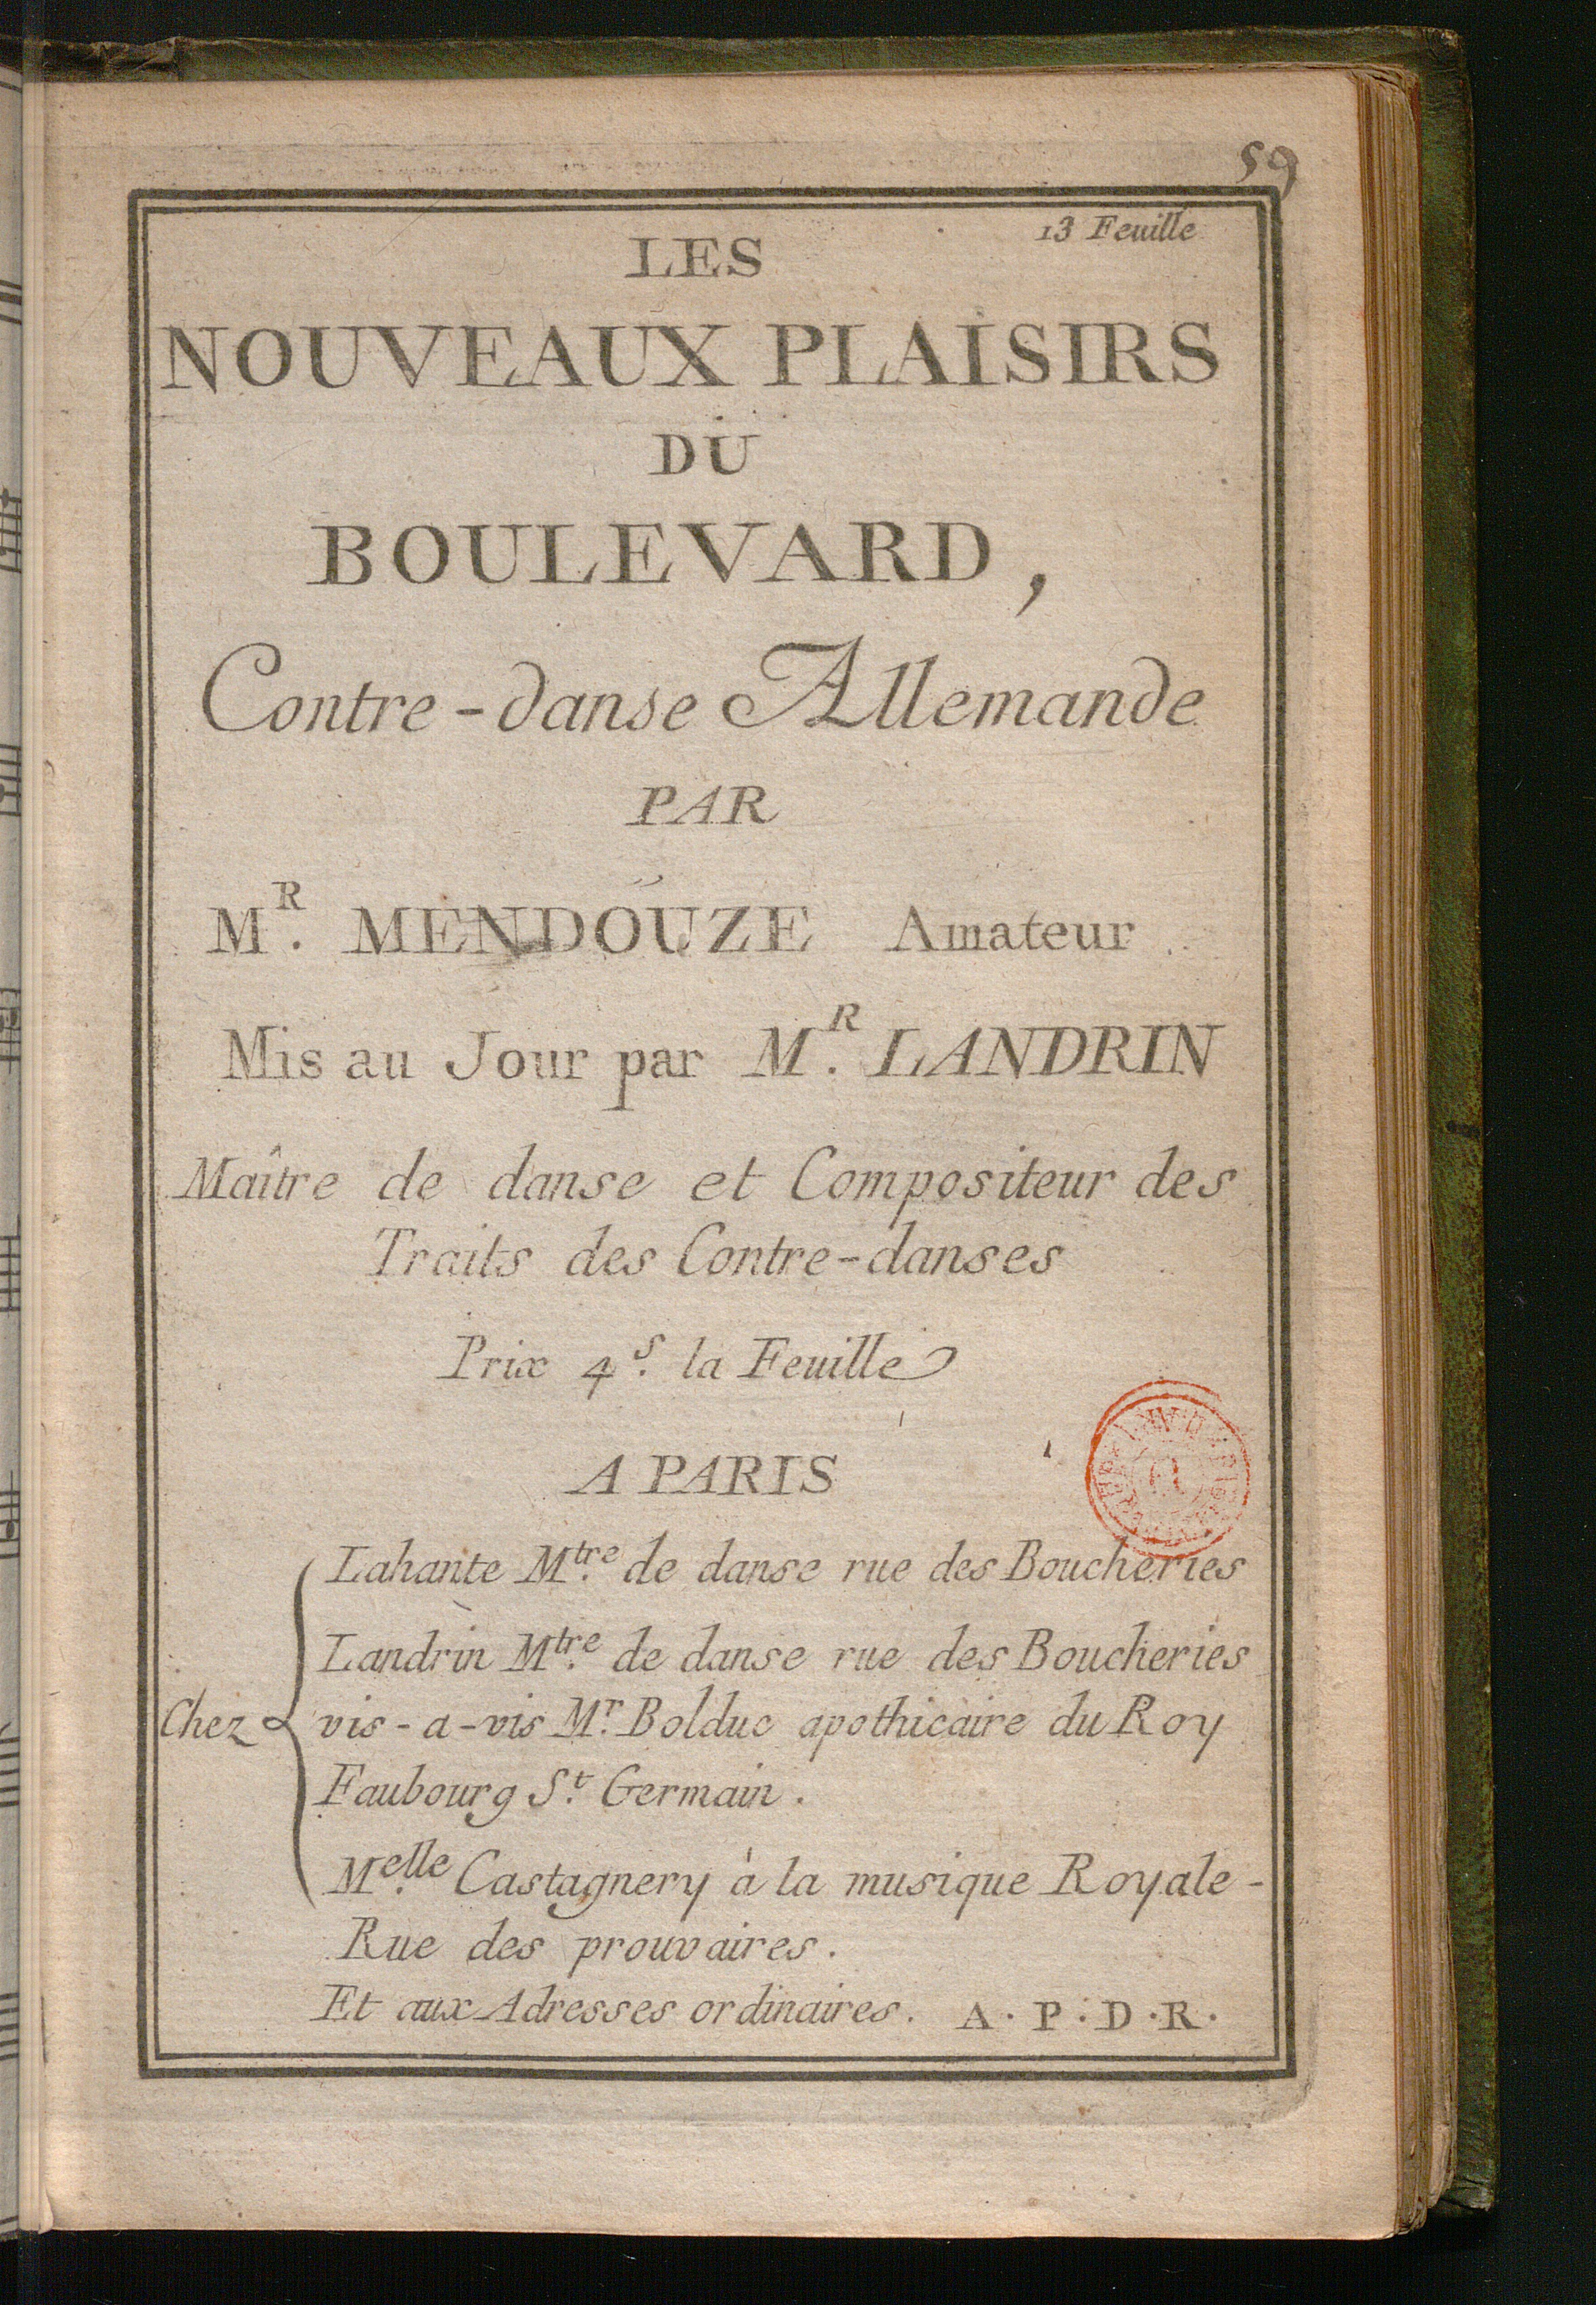 59
13 Feuille
LES
NOUVEAUX PLAISIRS
DU
BOULEVARD,
Contre-danse Allemande
PAR
MR. MENDOUZE Amateur
Mis au Jour par MR. LANDRIN
Maître de danse et Compositeur des
Traits des Contre-danses
Prix 4s. la Feuille
A PARIS
Lahante Mtre. de danse rue des Boucheries
Landrin Mtre. de danse rue des Boucheries
Chez vis-a-vis Mr. Bolduc apothicaire du Roy
Faubourg St. Germain.
Melle. Castagnery à la musique Royale-
Rue des prouvaires.
Et aux Adresses ordinaires. A.P.D.R.